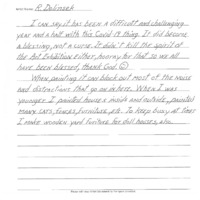 R. Dolinsek
I can say it has been a difficult and challenging
year and a half with this Covid 19 thing. It did become
a blessing, not a curse. It didn't kill the spirit of
the Art Exhibition Either, hooray for that so we all
have been blessed, thank God. ☺
When painting it can block out most of the noise
and distractions that go on there. When I was
younger I painted house's inside and outside, painted
many cars, fences, furniture, etc. To keep busy at times
I make wooden yard furniture for doll houses, also.